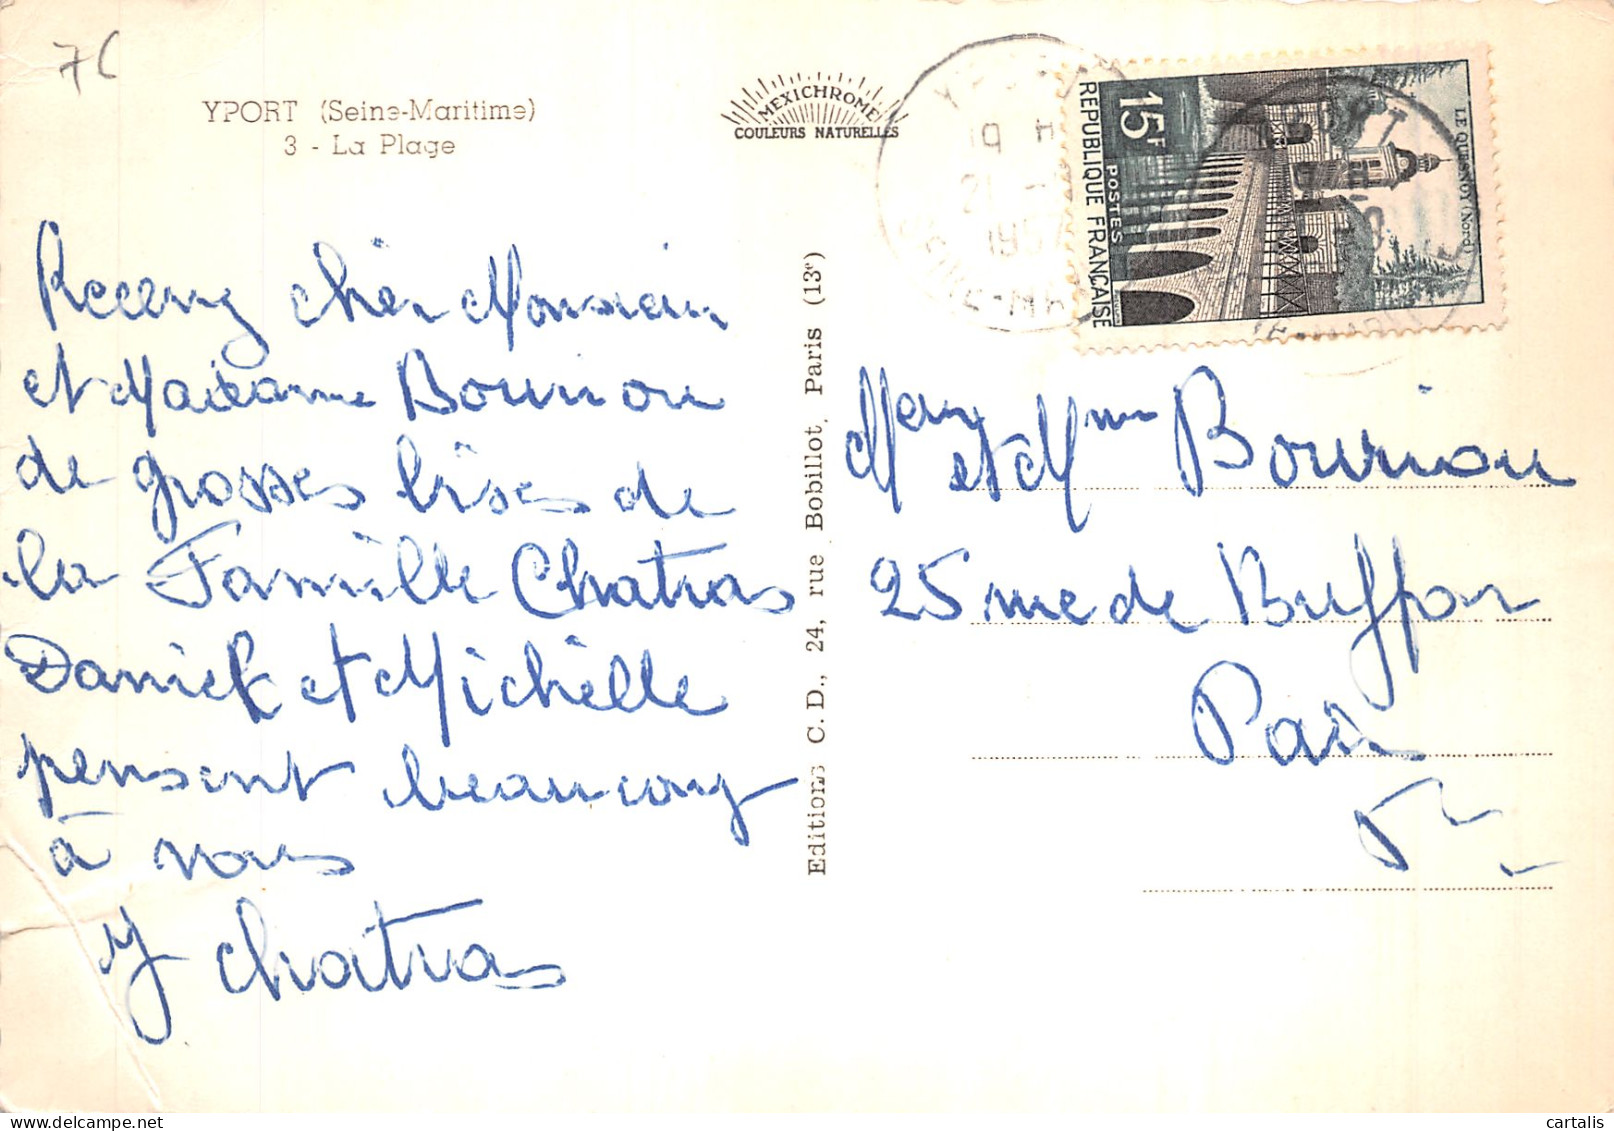 76
YPORT (Seine-Maritime)
3 - La Plage
MEXICHROME
COULEURS NATURELLES
Recevez cher Monsieur
et Madame Bourriou
de grosses bises de
la Famille Chatras
Daniel et Michèlle
pensent beaucoup
à vous
Y Chatras
Editions C. D., 24, rue Bobillot, Paris (13e)
19 H
21 -
1957
SEINE-MAR
15F
POSTES
REPUBLIQUE FRANÇAISE
LE QUESNOY (Nord)
et Mme Bourriou
25 rue de Buffon
Paris
cartalis